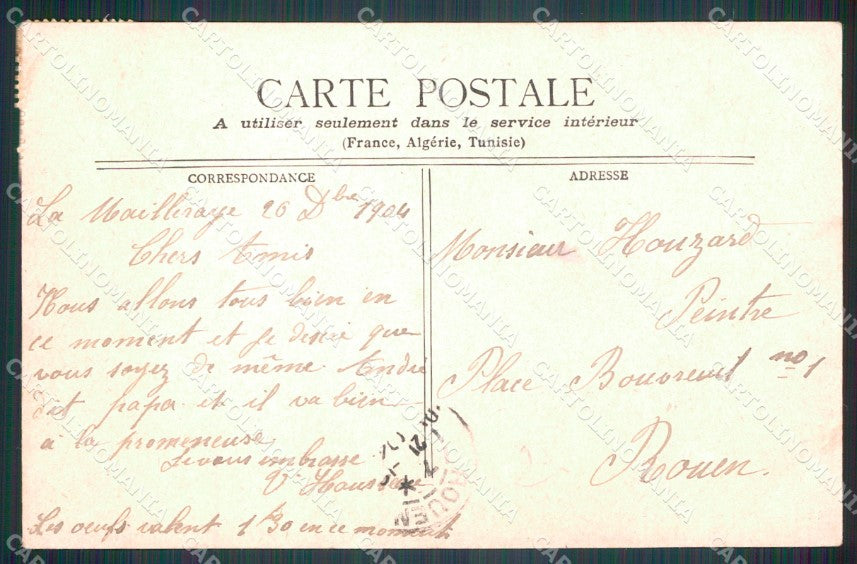 CARTE POSTALE
A utiliser seulement dans le service intérieur
(France, Algérie, Tunisie)
CORRESPONDANCE
La Mailleraye 26 Dbe 1904
Chers Amis
Nous allons tous bien en
ce moment et je desire que
vous soyez de même André
dit papa et il va bien
à la promeneuse
Je vous embrasse
V
Les oeufs valent 1 f30 en ce moment
ADRESSE
Monsieur Houzard
Peintre
Place Bouvreuil no 1
Rouen.
ROUEN
CARTOLINOMANIA